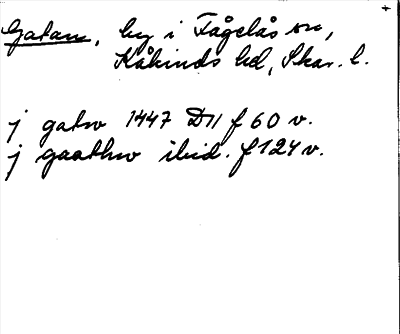 Gatan, by i Fågelås sn,
Kåkinds hd, Skar. l.
j gatw 1447 D11 f 60 v.
j gaathw ibid. f 124 v.